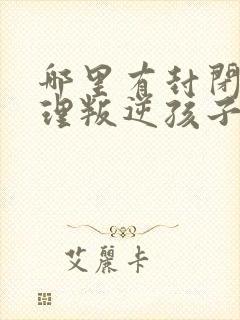 哪里有封闭
理叛逆孩子
艾麗卡